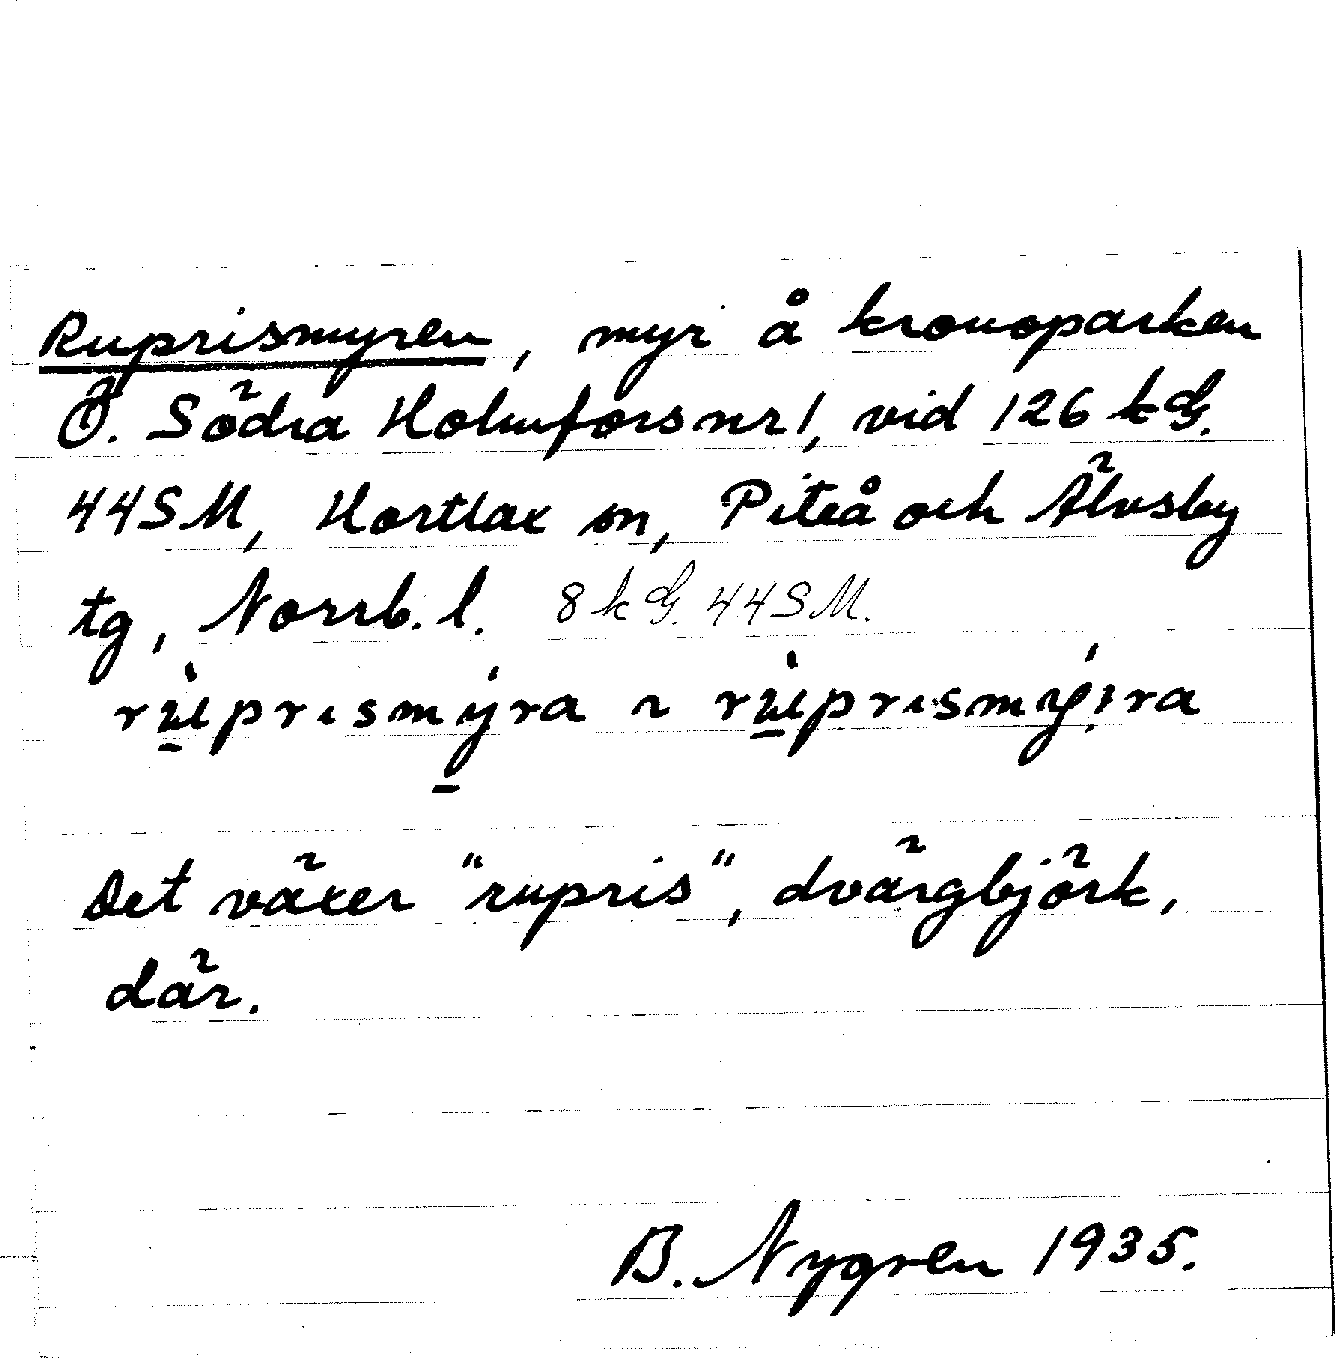 Ruprismyren, myr å kronoparken
Ö. Södra Holmfors nr 1, vid 126 k G.
44SM, Hortlax sn, Piteå och Älvsby
tg, Norrb. l. 8 k G. 44SM.
Det växer "rupris", dvärgbjörk,
där.
B. Nygren 1935.